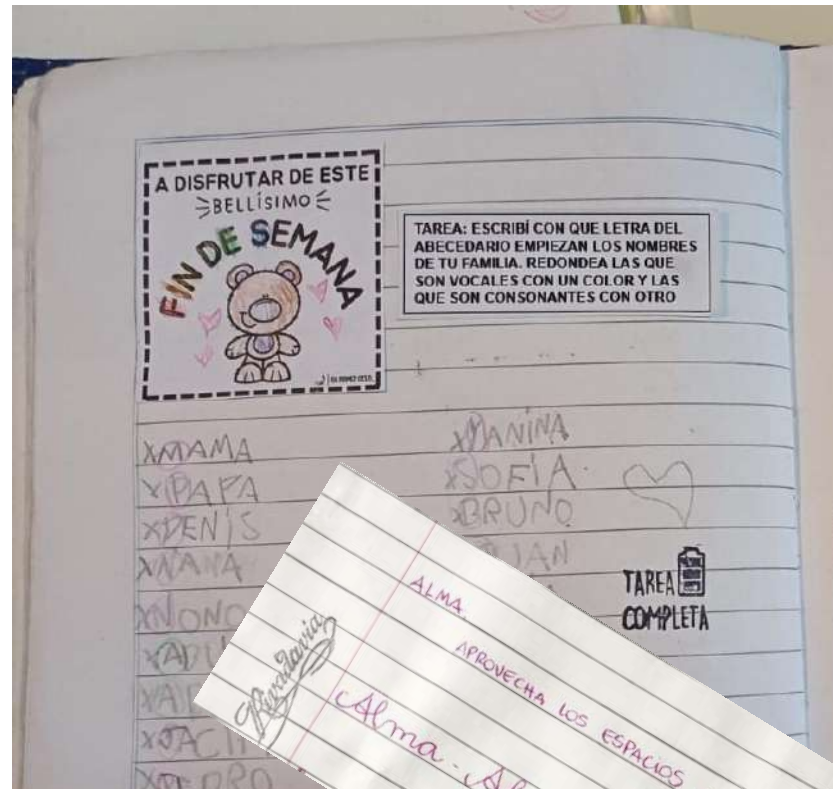 A DISFRUTAR DE ESTE
BELLÍSIMO
FIN DE SEMANA
TAREA: ESCRIBÍ CON QUE LETRA DEL
ABECEDARIO EMPIEZAN LOS NOMBRES
DE TU FAMILIA. REDONDEA LAS QUE
SON VOCALES CON UN COLOR Y LAS
QUE SON CONSONANTES CON OTRO
XMAMA
XPAPA
XDENIS
XNONO
XPEDRO
XSOFÍA
XBRUNO
TAREA
COMPLETA
Rivadavia
ALMA.
APROVECHA LOS ESPACIOS
Alma.